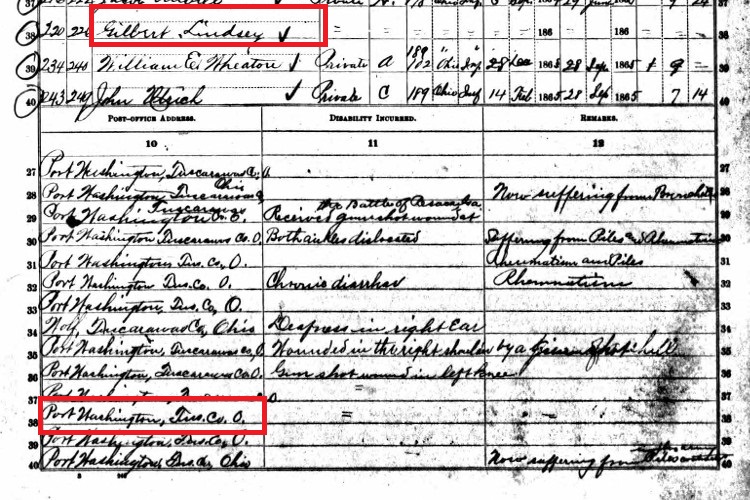 38 220 226 Gilbert Lindsey ✓ " " " 186 186
39 234 240 William E Wheaton Private A 189 102 Ohio Inf 28 Dec 1865 28 Sep 186 9
40 243 249 John Ulrich ✓ Private C 189 Ohio Inf 14 Feb 1865 28 Sep 1865 7 14
POST-OFFICE ADDRESS. DISABILITY INCURRED. REMARKS.
10 11 12
27 Port Washington, Tuscarawas Co. O 27
28 Port Washington, Tuscarawas Ohio Now suffering from 28
29 Port Washington Tuscarawas Co. O. Received gun shot wound at the Battle of 29
30 Port Washington Tuscarawas Co, O. Both ankles dislocated Suffering from Piles & Rheumatism 30
31 Port Washington Tus. Co, O. Rheumatism and Piles 31
32 Port Washington Tus. Co. O. Chronic diarrhea Rheumatism 32
33 Port Washington, Tus. Co, O. 33
34 Wolf, Tuscarawas Co, Ohio Deafness in right Ear 34
35 Port Washington, Tuscarawas Co, O. Wounded in the right shoulder by a shell 35
36 Port Washington, Tuscarawas Co. O. Gun shot wound in left knee 36
37 Port Washington 37
38 Port Washington, Tus. Co. O. " 38
39 Port Washington, Tus. Co, O. 39
40 Port Washington, Tus. Co Ohio Now suffering from 40